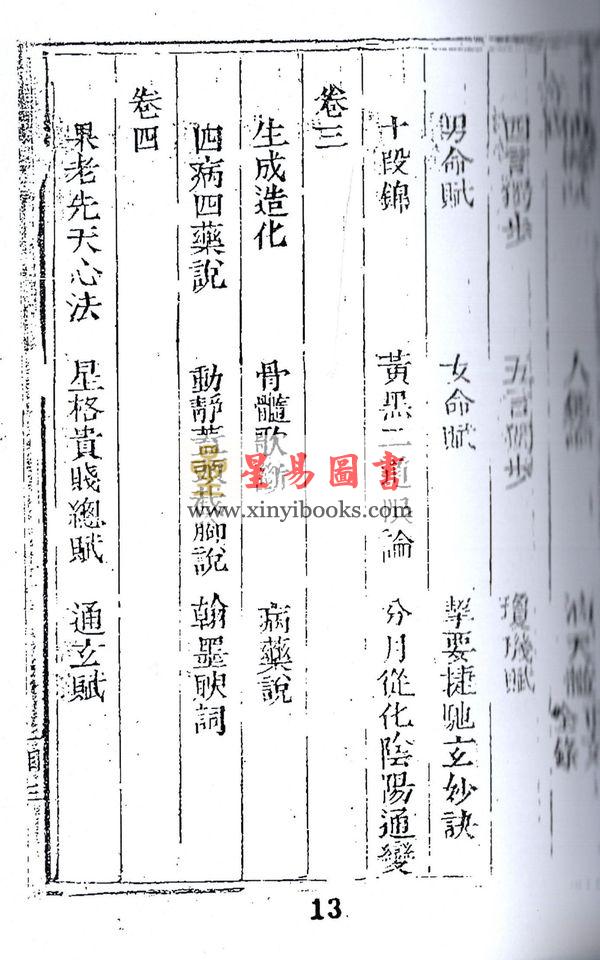 四言獨步 五言獨步 瓊璣賦
男命賦 女命賦 挈要捷馳玄妙訣
十段錦 黃黑二道 論 分月從化陰陽通變
卷三
生成造化 骨髓歌斷 病藥說
四病四藥說 動靜蓋頭截腳說 翰墨映詞
卷四
果老先天心法 星格貴賤總賦 通玄賦
目 三
星易圖書
www.xinyibooks.com
13